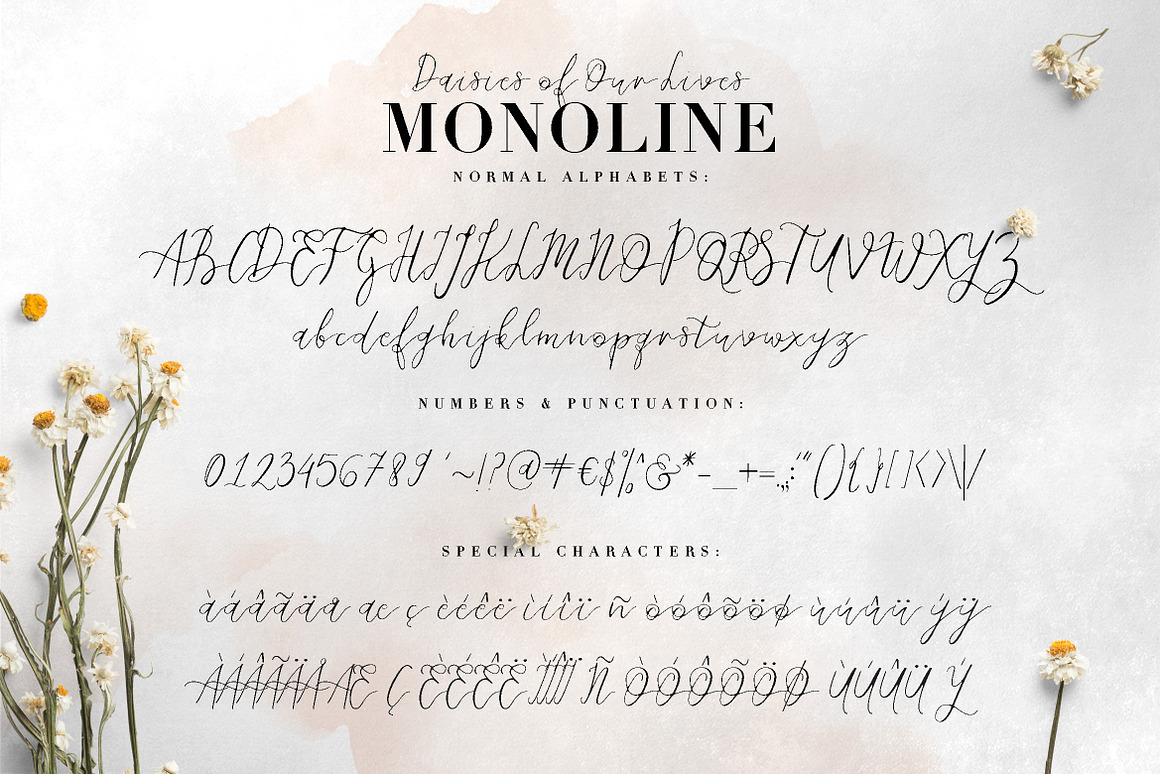 Daisies of Our Lives
MONOLINE
NORMAL ALPHABETS:
ABCDEFGHIJKLMNOPQRSTUVWXYZ
abcdefghijklmnopqrstuvwxyz
NUMBERS & PUNCTUATION:
0123456789'~!?@#€$%^&*-_+=.,;:"(){}[]<>\|/
SPECIAL CHARACTERS:
àáâãäå æ ç èéêë ìíîï ñ òóôõöø ùúûü ýÿ
ÀÁÂÃÄÅÆ Ç ÈÉÊË ÌÍÎÏ Ñ ÒÓÔÕÖØ ÙÚÛÜ Ý